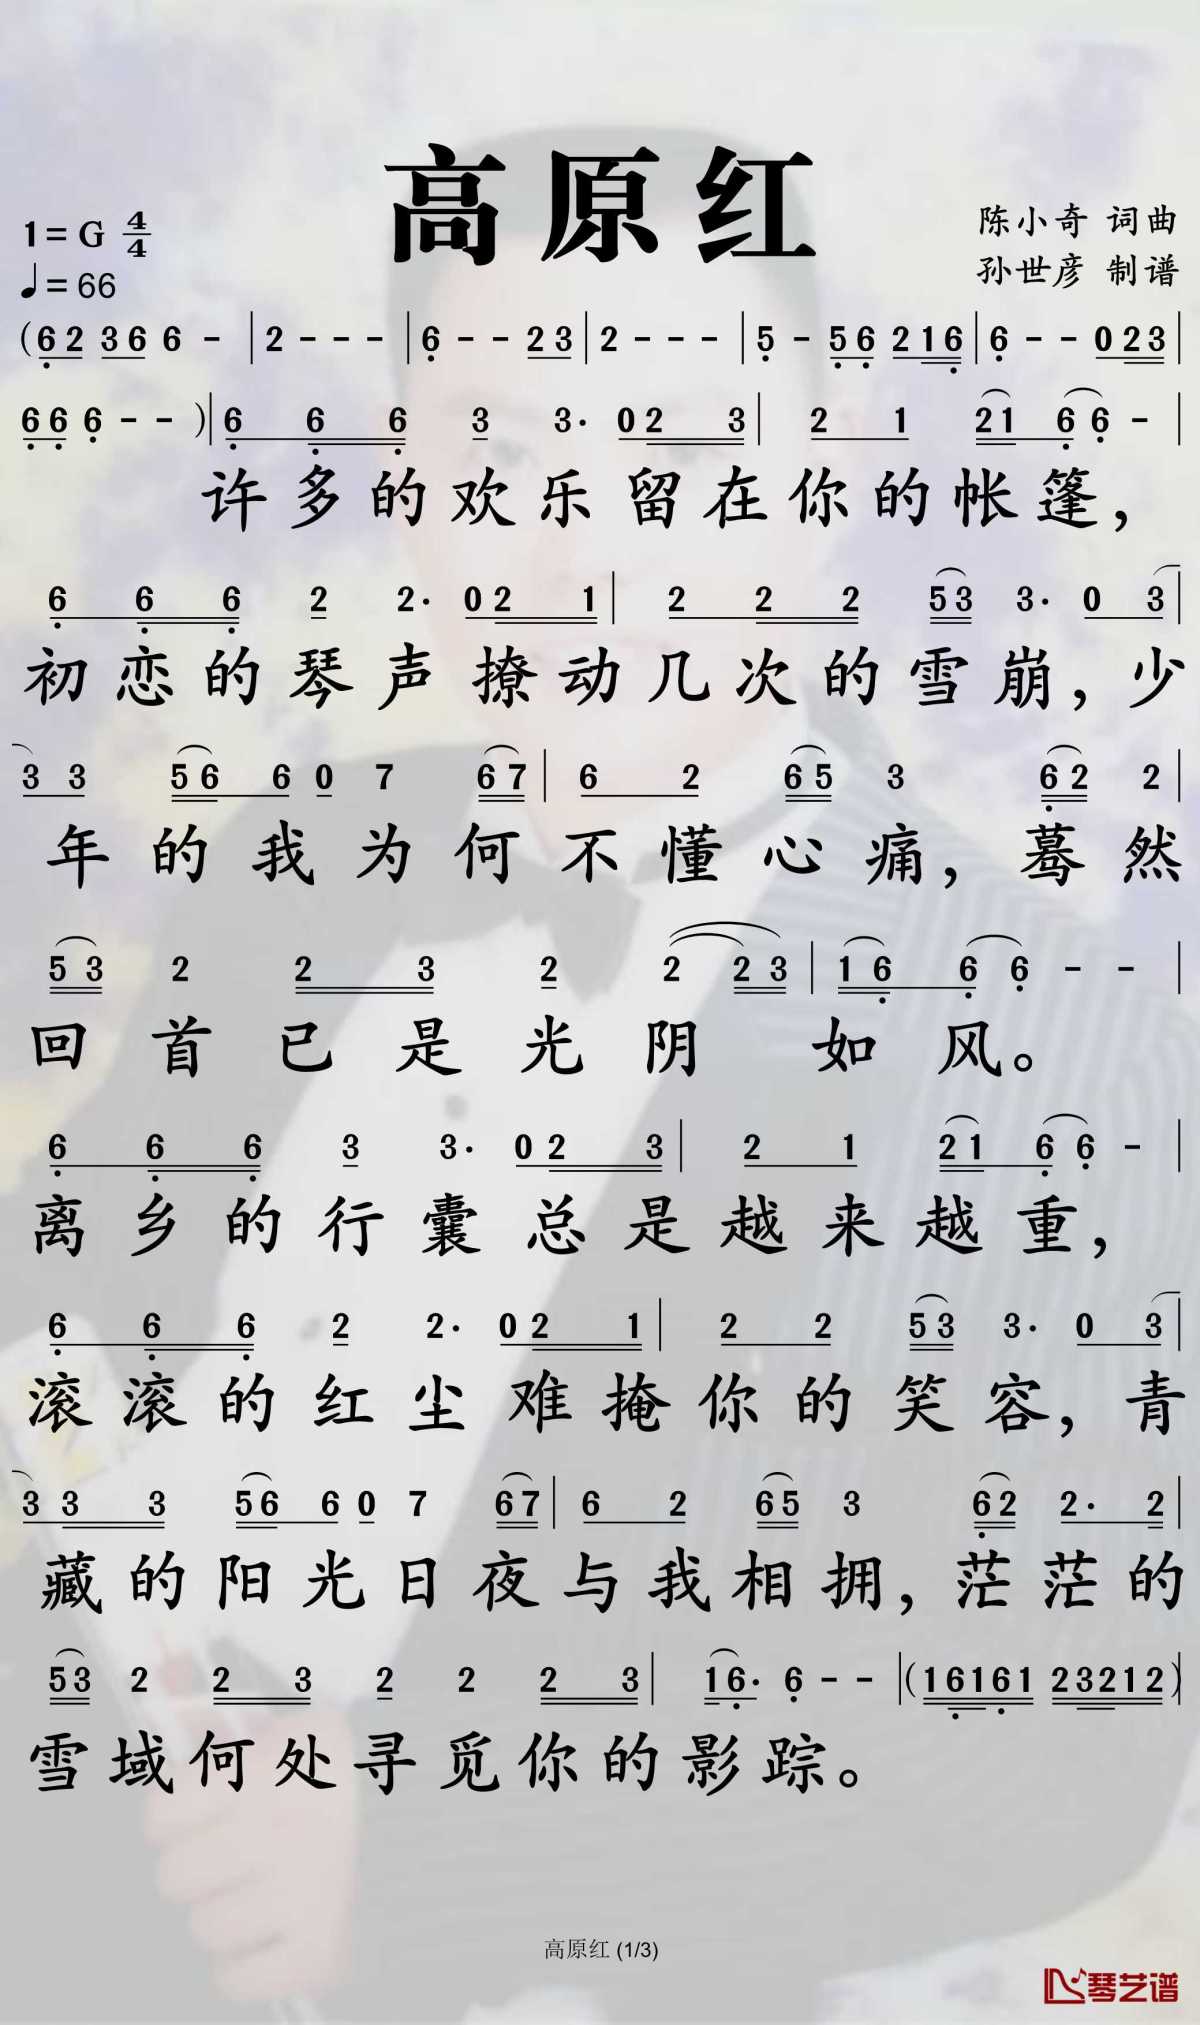 高原红
1=G 4/4
♩=66
陈小奇 词曲
孙世彦 制谱
(6 2 3 6 6 - | 2 - - - | 6 - - 2 3 | 2 - - - | 5 - 5 6 2 1 6 | 6 - - 0 2 3 |
6 6 6 - - ) | 6 6 6 3 3· 0 2 3 | 2 1 2 1 6 6 - |
许多的欢乐留在你的帐篷，
6 6 6 2 2· 0 2 1 | 2 2 2 5 3 3· 0 3 |
初恋的琴声撩动几次的雪崩，少
3 3 5 6 6 0 7 6 7 | 6 2 6 5 3 6 2 2 |
年的我为何不懂心痛，蓦然
5 3 2 2 3 2 2 2 3 | 1 6 6 6 - - |
回首已是光阴如风。
6 6 6 3 3· 0 2 3 | 2 1 2 1 6 6 - |
离乡的行囊总是越来越重，
6 6 6 2 2· 0 2 1 | 2 2 5 3 3· 0 3 |
滚滚的红尘难掩你的笑容，青
3 3 3 5 6 6 0 7 6 7 | 6 2 6 5 3 6 2 2· 2 |
藏的阳光日夜与我相拥，茫茫的
5 3 2 2 3 2 2 2 3 | 1 6· 6 - - | (1 6 1 6 1 2 3 2 1 2) |
雪域何处寻觅你的影踪。
高原红 (1/3)
琴艺谱